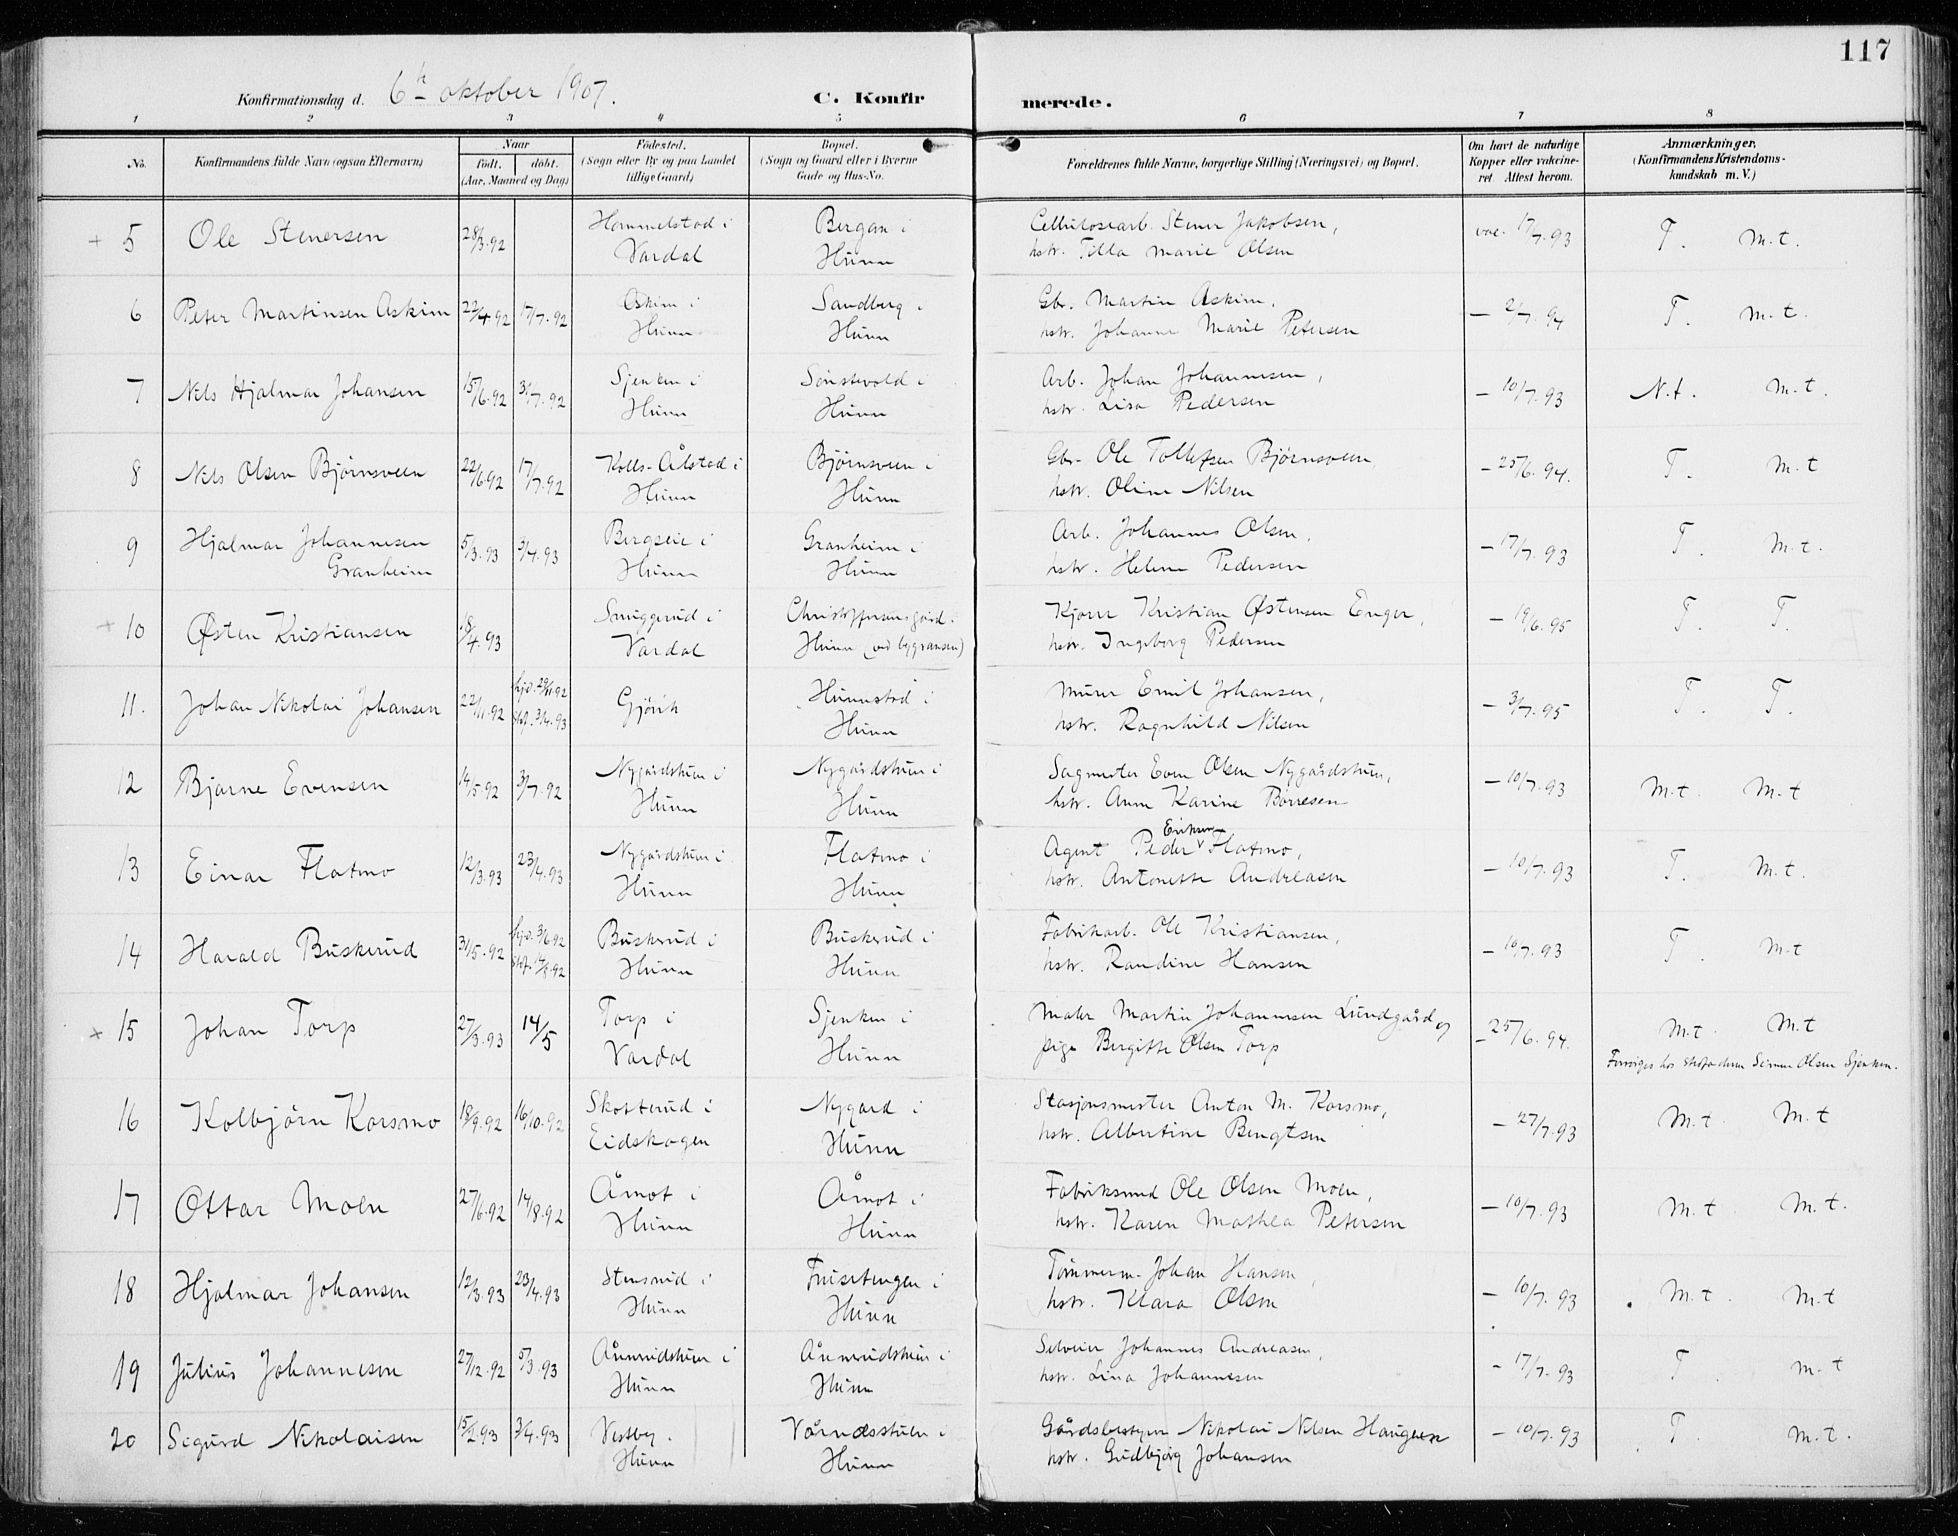 117
Konfirmationsdag d. 6te oktober 1907. C. Konfirmerede.
1 2 3 4 5 6 7 8
No. Konfirmandens fulde Navn (ogsaa Efternavn) Naar født. døbt. (Aar, Maaned og Dag) Fødested. (Sogn eller By og paa Landet tillige Gaard) Bopæl. (Sogn og Gaard eller i Byerne Gade og Hus-No. Forældrenes fulde Navne, borgerlige Stilling (Næringsvei) og Bopæl. Om havt de naturlige Kopper eller vakcineret. Attest herom. Anmærkninger, (Konfirmandens Kristendomskundskab m. V.)
+ 5 Ole Stenersen 28/3.92 Hammelstad i Vardal Bergan i Hunn Cellulosearb. Stener Jakobsen, hstr. Tilla Marie Olsen vac. 17/7.93 T. M.t.
6 Peter Martinsen Askim 22/4.92 17/7.92 Askim i Hunn Sandberg i Hunn Gbr. Martin Askim, hstr. Johanne Marie Petersen — 2/7.94 T. M.t.
7 Nils Hjalmar Johansen 15/6.92 31/7.92 Sjenken i Hunn Sønstevold i Hunn Arb. Johan Johannesen, hstr. Lisa Pedersen — 10/7.93 N.t. M.t.
8 Nils Olsen Bjørnsveen 22/6.92 17/7.92 Kolls-Ålstad i Hunn Bjørnsveen i Hunn Gbr. Ole Tollefsen Bjørnsveen, hstr. Oline Nilsen — 25/6.94. T. M.t
9 Hjalmar Johannesen Granheim 5/3.93 3/4.93 Bergseie i Hunn Granheim i Hunn Arb. Johannes Olsen, hstr. Helene Pedersen — 17/7.93 T. M.t.
+ 10 Østen Kristiansen 18/4.93 Smuggerud i Vardal Christoffersensgård i Hunn (ved bygrænsen) Kjører Kristian Østensen Enger, hstr. Ingeborg Pedersen — 19/6.95 T. T.
11. Johan Nikolai Johansen 22/11.92 hjd. 29/11.92 stf. 3/4.93 Gjøvik Hunnstad i Hunn Murer Emil Johansen, hstr. Ragnhild Nilsen — 3/7.95 T. T.
12 Bjarne Evensen 14/5.92 3/7.92 Nygårdstuen i Hunn Nygårdstuen i Hunn Sagmester Even Olsen Nygårdstuen, hstr. Anne Karine Børresen — 10/7.93 M.t. M.t
13 Einar Flatmo 12/3.93 23/4.93 Nygårdstuen i Hunn Flatmo i Hunn Agent Peder Eriksen Flatmo, hstr. Antonette Andreasen — 10/7.93 T. M.t.
14 Harald Buskerud 31/5.92 hjd. 3/6.92 stf. 14/8.92 Buskerud i Hunn Buskerud i Hunn Fabrikarb. Ole Kristiansen, hstr. Randine Hansen — 10/7.93 T. M.t
+ 15 Johan Torp 27/3.93 14/5 Torp i Vardal Sjenken i Hunn Maler Martin Johannesen Lundgård og pige Bergitte Olsen Torp — 25/6.94. M.t. M.t
Olsen Sjenken.
16 Kolbjörn Korsmo 18/9.92 16/10.92 Skotterud i Eidskogen Nygard i Hunn Stasjonsmester Anton M. Korsmo, hstr. Albertine Bengtsen — 27/7.93 M.t. M.t
17 Ottar Moen 27/6.92 14/8.92 Åmot i Hunn Åmot i Hunn Fabriksmed Ole Olsen Moen, hstr. Karen Mathea Petersen — 10/7.93 M.t. M.t.
18 Hjalmar Johansen 12/3.93 23/4.93 Stensrud i Hunn i Hunn Tømmerm. Johan Hansen, hstr. Klara Olsen — 10/7.93 M.t. M.t
19 Julius Johannesen 27/12.92 5/3.93 Åmrudstuen i Hunn Åmrudstuen i Hunn Selveier Johannes Andreasen, hstr. Lina Johannesen — 17/7.93 T. M.t
20 Sigurd Nikolaisen 15/2.93 3/4.93 Vestby i Hunn Vårnæsstuen i Hunn Gårdsbestyrer Nikolai Nilsen Haugen hstr. Gudbjørg Johansen — 10/7.93 T. M.t.